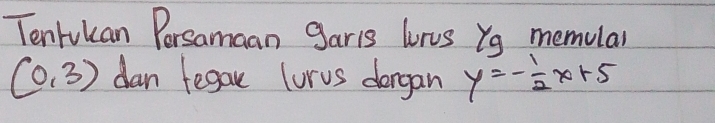 Tentukan Persamaan garis lurus Yg memulai
(0,3) dan tegak lurus dengan y = -1/2 x + 5